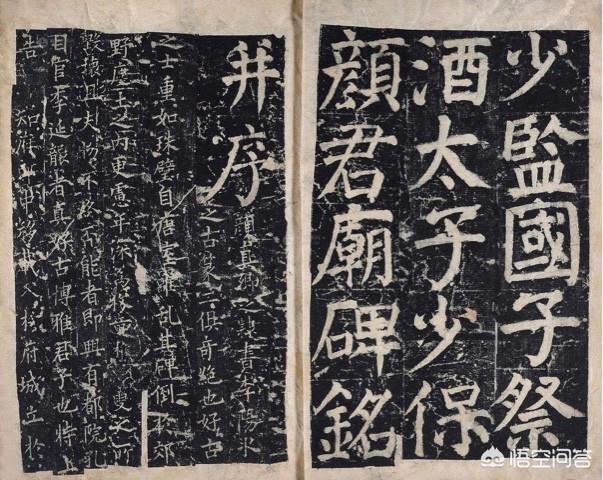 少監國子祭
酒太子少保
顏君廟碑銘
并序
顏真卿之楷書李陽冰
之古篆二俱奇絶也好古
之士重如珠璧自唐室離亂其碑倒於郊
野塵土之内更慮年深
叟之所
毀壞且夫物不終否能者即興有都院孔
目官李延襲者真好古博雅君子也特上
告 知府郎中移載入於府城立於
悟空问答